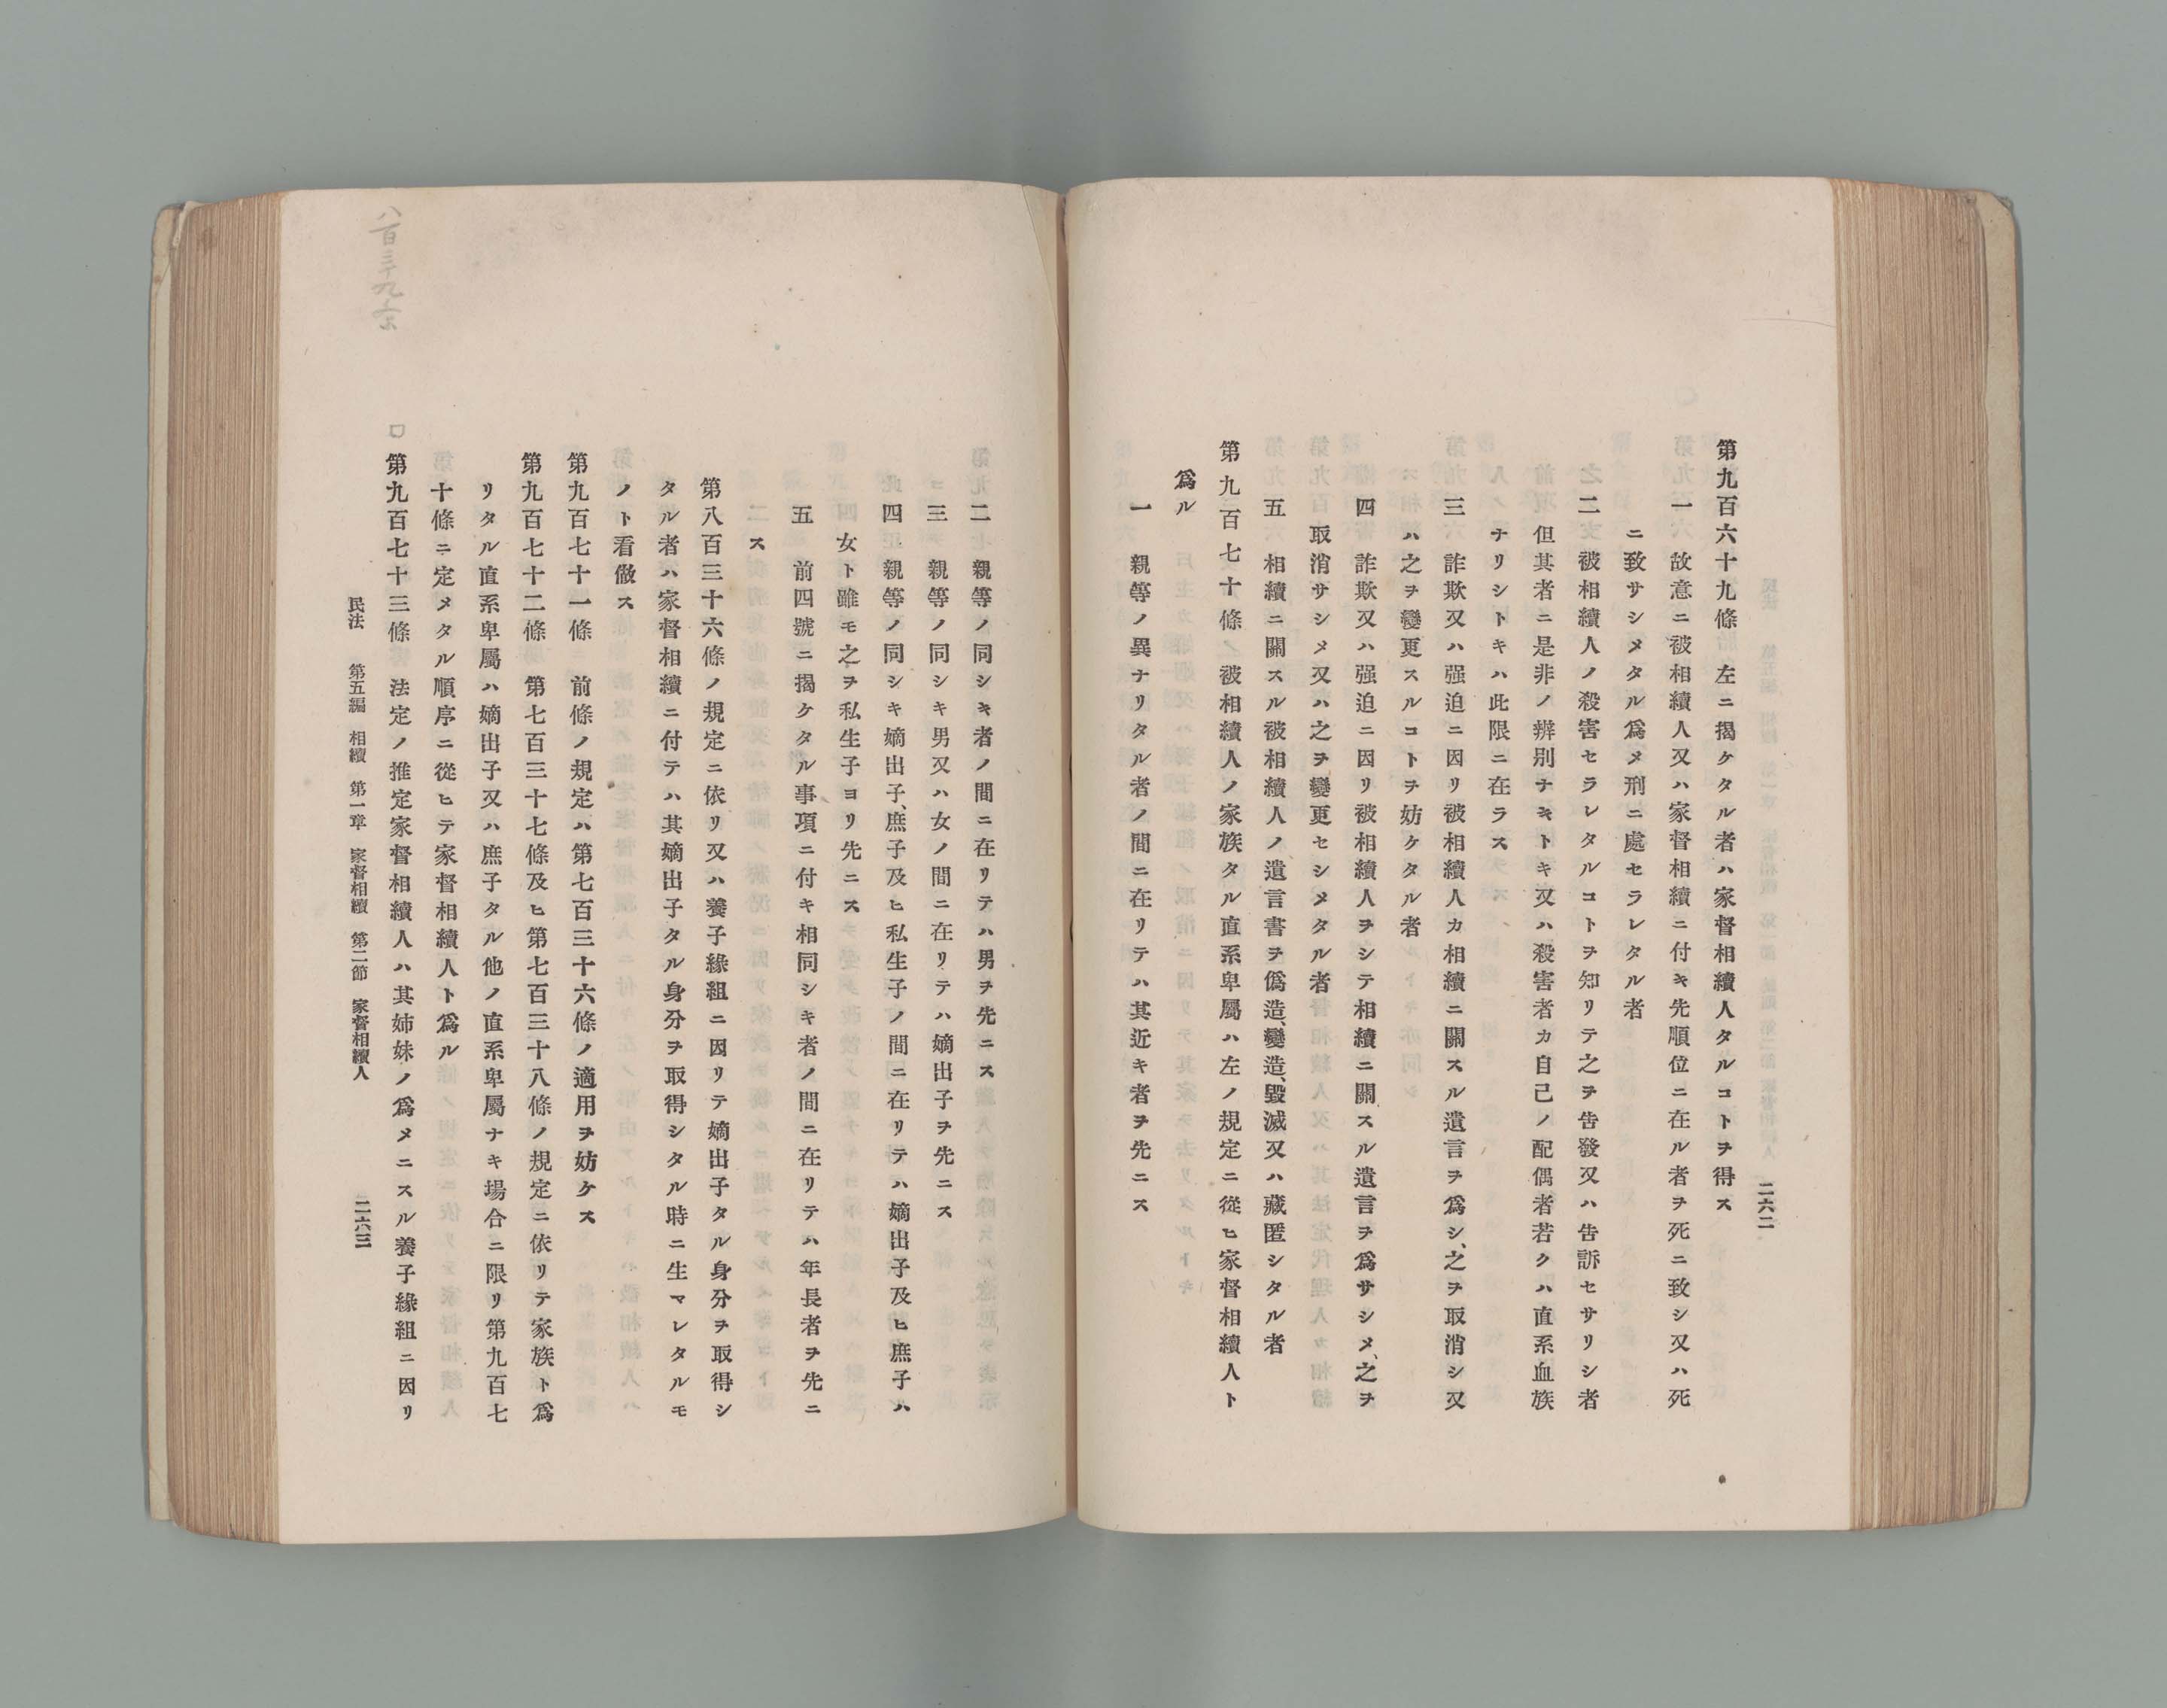 二六二
第九百六十九條　左ニ揭ケタル者ハ家督相續人タルコトヲ得ス
一　故意ニ被相續人又ハ家督相續ニ付キ先順位ニ在ル者ヲ死ニ致シ又ハ死
ニ致サシメタル爲メ刑ニ處セラレタル者
二　被相續人ノ殺害セラレタルコトヲ知リテ之ヲ吿發又ハ吿訴セサリシ者
但其者ニ是非ノ辨別ナキトキ又ハ殺害者カ自己ノ配偶者若クハ直系血族
ナリシトキハ此限ニ在ラス
三　詐欺又ハ强迫ニ因リ被相續人カ相續ニ關スル遺言ヲ爲シ、之ヲ取消シ又
ハ之ヲ變更スルコトヲ妨ケタル者
四　詐欺又ハ强迫ニ因リ被相續人ヲシテ相續ニ關スル遺言ヲ爲サシメ、之ヲ
取消サシメ又ハ之ヲ變更セシメタル者
五　相續ニ關スル被相續人ノ遺言書ヲ僞造、變造、毀滅又ハ藏匿シタル者
第九百七十條　被相續人ノ家族タル直系卑屬ハ左ノ規定ニ從ヒ家督相續人ト
爲ル
一　親等ノ異ナリタル者ノ間ニ在リテハ其近キ者ヲ先ニス
二　親等ノ同シキ者ノ間ニ在リテハ男ヲ先ニス
三　親等ノ同シキ男又ハ女ノ間ニ在リテハ嫡出子ヲ先ニス
四　親等ノ同シキ嫡出子、庶子及ヒ私生子ノ間ニ在リテハ嫡出子及ヒ庶子ハ
女ト雖モ之ヲ私生子ヨリ先ニス
五　前四號ニ揭ケタル事項ニ付キ相同シキ者ノ間ニ在リテハ年長者ヲ先ニ
ス
第八百三十六條ノ規定ニ依リ又ハ養子緣組ニ因リテ嫡出子タル身分ヲ取得シ
タル者ハ家督相續ニ付テハ其嫡出子タル身分ヲ取得シタル時ニ生マレタルモ
ノト看做ス
第九百七十一條　前條ノ規定ハ第七百三十六條ノ適用ヲ妨ケス
第九百七十二條　第七百三十七條及ヒ第七百三十八條ノ規定ニ依リテ家族ト爲
リタル直系卑屬ハ嫡出子又ハ庶子タル他ノ直系卑屬ナキ場合ニ限リ第九百七
十條ニ定メタル順序ニ從ヒテ家督相續人ト爲ル
第九百七十三條　法定ノ推定家督相續人ハ其姉妹ノ爲メニスル養子緣組ニ因リ
民法　第五編　相續　第一章　家督相續　第二節　家督相續人　二六三
八百三十九条